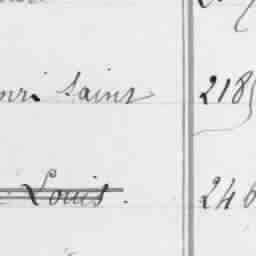 nri Saint 2185
Louis. 246